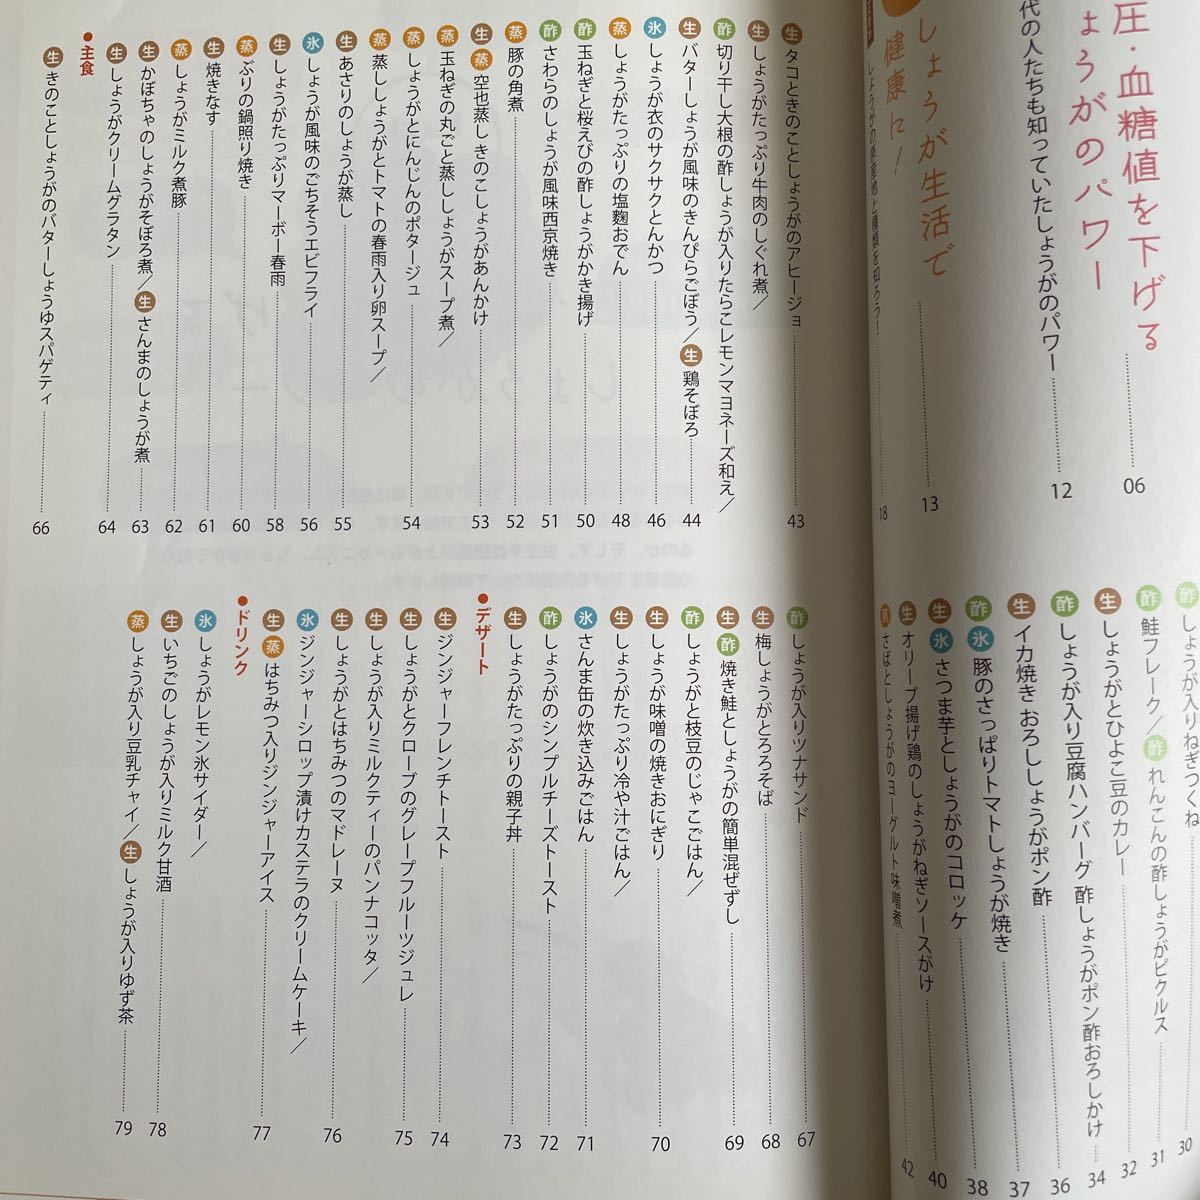 圧・血糖値を下げる
ょうがのパワー……06
代の人たちも知っていたしょうがのパワー……12
しょうが生活で
健康に！……13
しょうがの原産地と種類を知ろう！……18
しょうが入りねぎつくね……30
酢 鮭フレーク／酢 れんこんの酢しょうがピクルス……31
生 しょうがとひよこ豆のカレー……32
酢 しょうが入り豆腐ハンバーグ 酢しょうがポン酢おろしかけ……34
生 イカ焼き おろししょうがポン酢……36
酢 氷 豚のさっぱりトマトしょうが焼き……37
生 氷 さつま芋としょうがのコロッケ……38
生 オリーブ揚げ鶏のしょうがねぎソースがけ……40
蒸 さばとしょうがのヨーグルト味噌煮……42
生 タコときのことしょうがのアヒージョ……43
生 しょうがたっぷり牛肉のしぐれ煮／
酢 切り干し大根の酢しょうが入りたらこレモンマヨネーズ和え／
生 バターしょうが風味のきんぴらごぼう／生 鶏そぼろ……44
氷 しょうが衣のサクサクとんかつ……46
蒸 しょうがたっぷりの塩麴おでん……48
酢 玉ねぎと桜えびの酢しょうがかき揚げ……50
酢 さわらのしょうが風味西京焼き……51
蒸 豚の角煮……52
生 蒸 空也蒸し きのこしょうがあんかけ……53
蒸 玉ねぎの丸ごと蒸ししょうがスープ煮／
蒸 しょうがとにんじんのポタージュ……54
蒸 蒸ししょうがとトマトの春雨入り卵スープ／
生 あさりのしょうが蒸し……55
氷 しょうが風味のごちそうエビフライ……56
生 しょうがたっぷりマーボー春雨……58
蒸 ぶりの鍋照り焼き……60
生 焼きなす……61
蒸 しょうがミルク煮豚……62
生 かぼちゃのしょうがそぼろ煮／生 さんまのしょうが煮……63
生 しょうがクリームグラタン……64
●主食
生 きのことしょうがのバターしょうゆスパゲティ……66
酢 しょうが入りツナサンド……67
生 梅しょうがとろろそば……68
生 酢 焼き鮭としょうがの簡単混ぜずし……69
酢 しょうがと枝豆のじゃこごはん／
生 しょうが味噌の焼きおにぎり……70
生 しょうがたっぷり冷や汁ごはん／
氷 さんま缶の炊き込みごはん……71
酢 しょうがのシンプルチーズトースト……72
生 しょうがたっぷりの親子丼……73
●デザート
生 ジンジャーフレンチトースト……74
生 しょうがとクローブのグレープフルーツジュレ……75
生 しょうが入りミルクティーのパンナコッタ／
生 しょうがとはちみつのマドレーヌ……76
氷 ジンジャーシロップ漬けカステラのクリームケーキ／
生 蒸 はちみつ入りジンジャーアイス……77
●ドリンク
氷 しょうがレモン氷サイダー／
生 いちごのしょうが入りミルク甘酒……78
蒸 しょうが入り豆乳チャイ／生 しょうが入りゆず茶……79